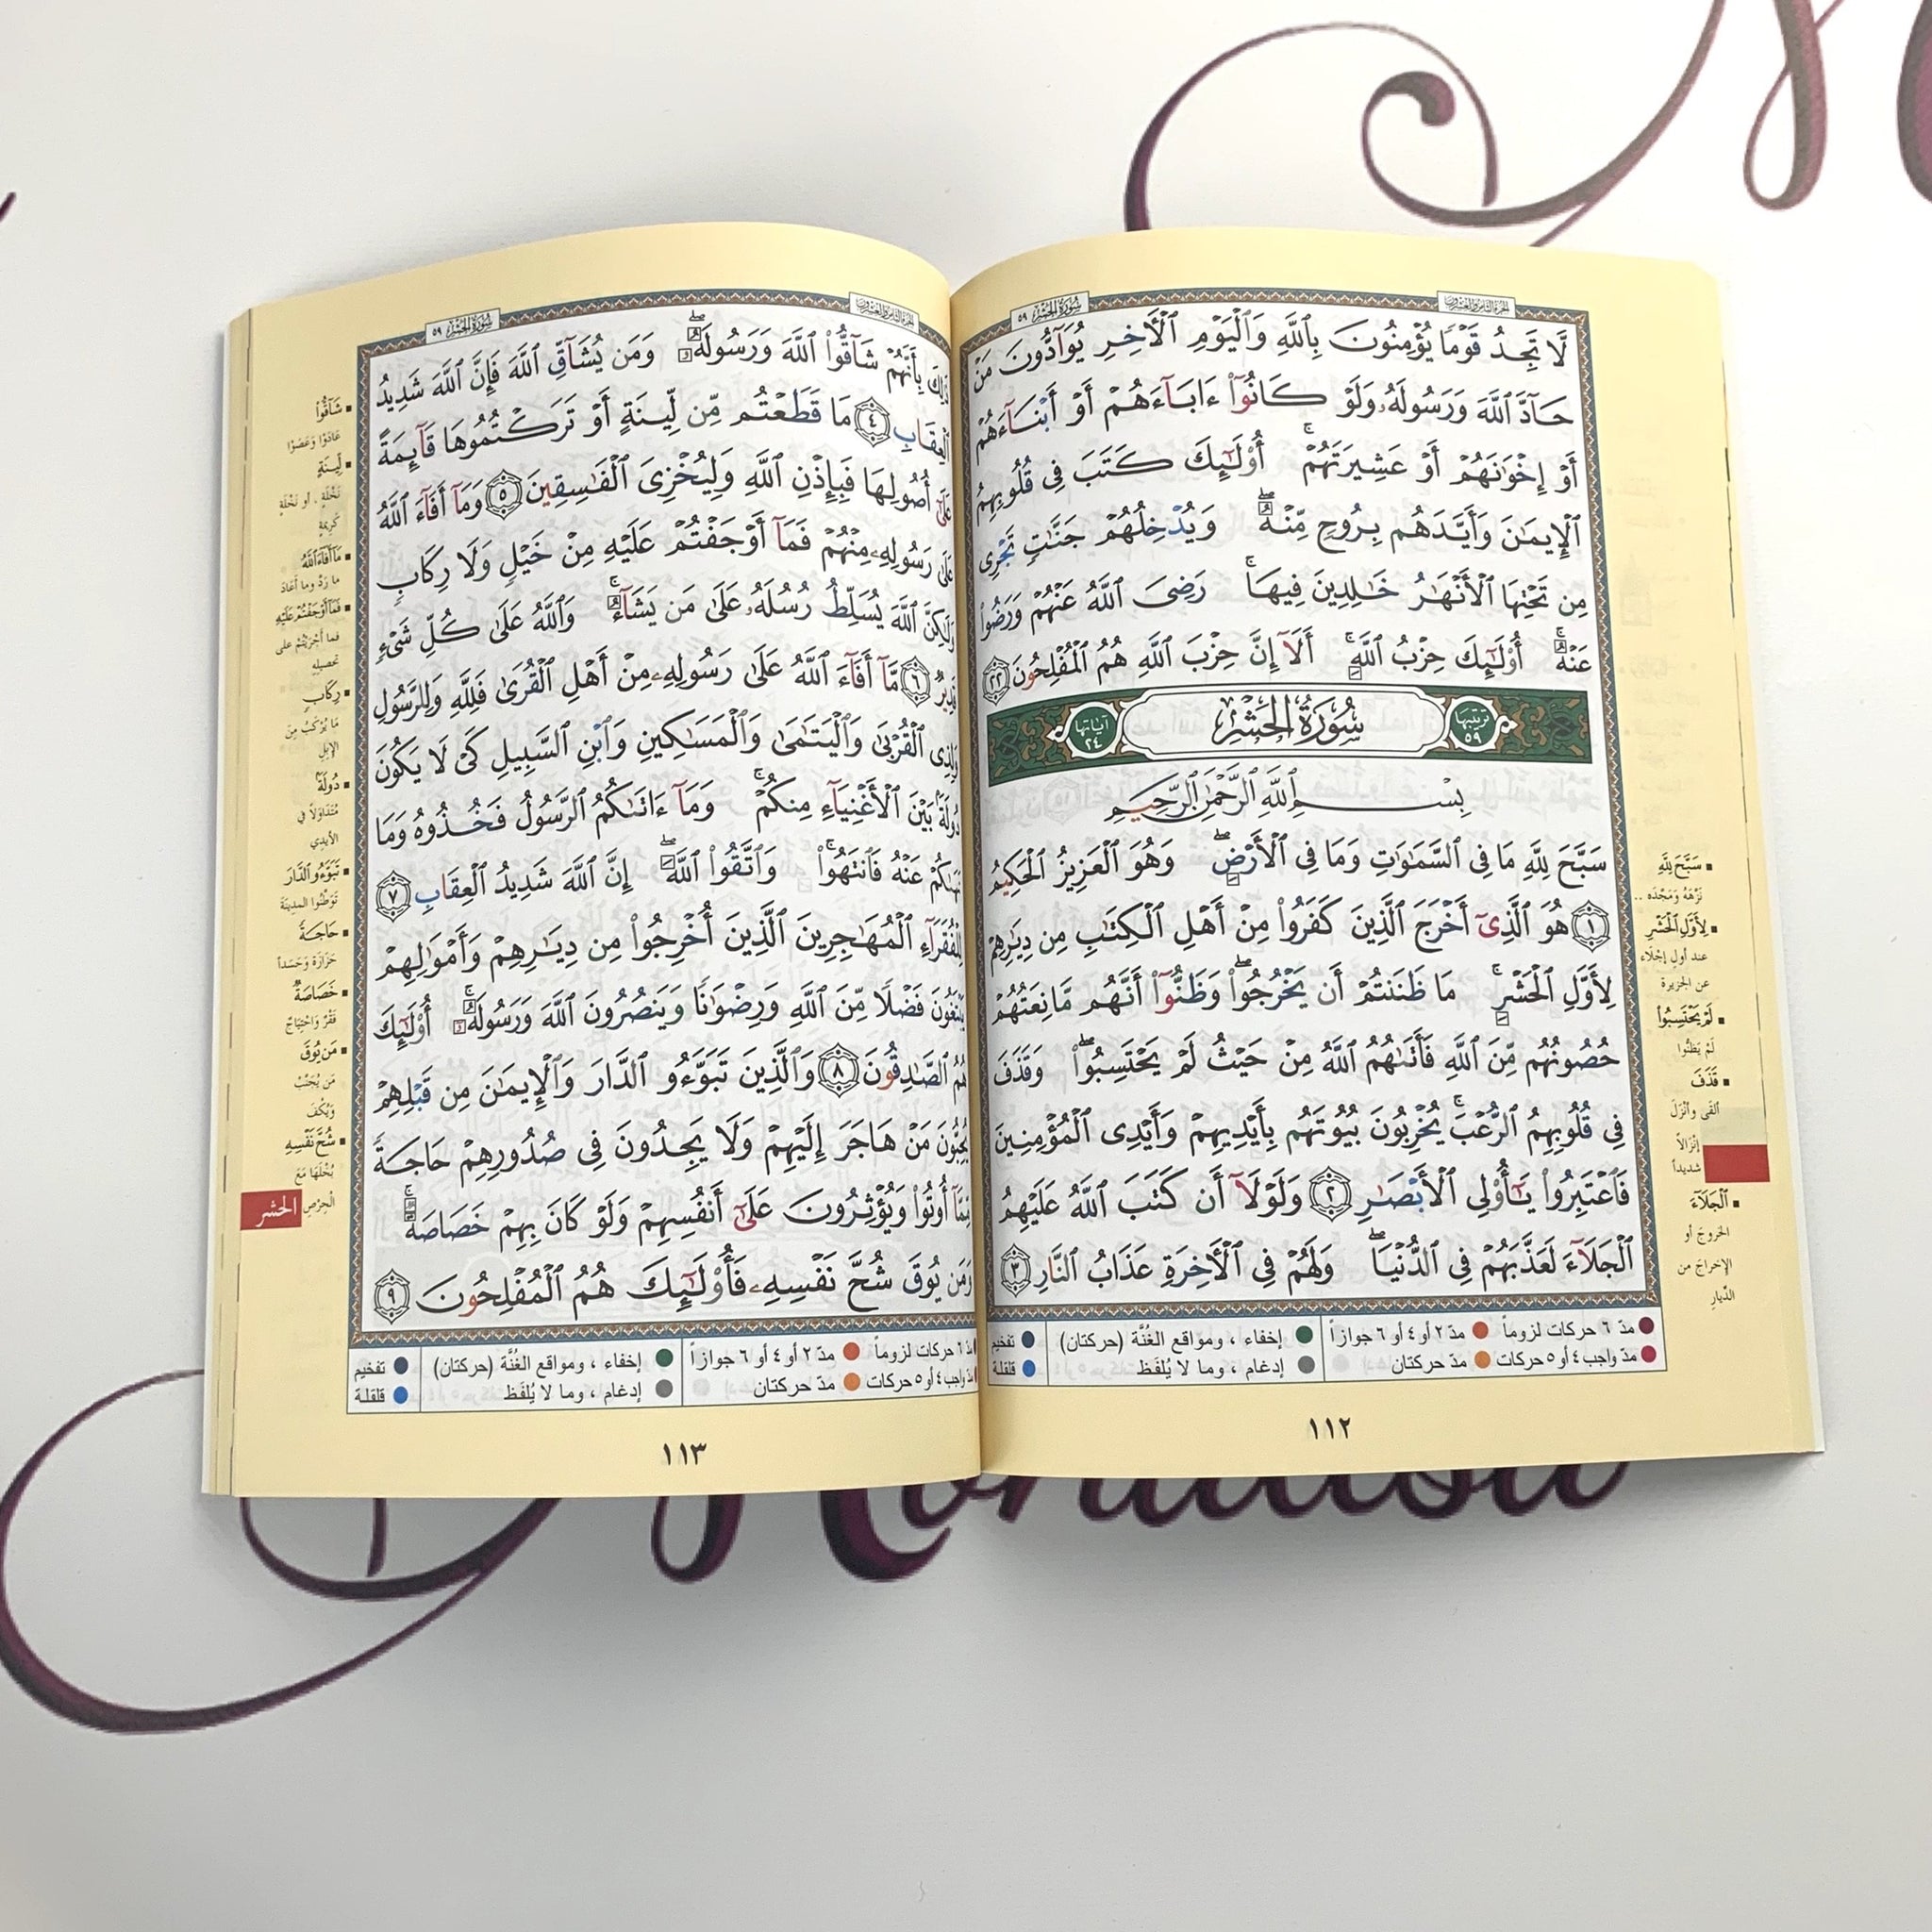 الجزء الثامن والعشرون
سورة الحشر ٥٩
لَّا تَجِدُ قَوْمًا يُؤْمِنُونَ بِٱللَّهِ وَٱلْيَوْمِ ٱلْأَخِرِ يُوَآدُّونَ مَنْ
حَآدَّ ٱللَّهَ وَرَسُولَهُۥ وَلَوْ كَانُوٓا۟ ءَابَآءَهُمْ أَوْ أَبْنَآءَهُمْ
أَوْ إِخْوَٰنَهُمْ أَوْ عَشِيرَتَهُمْ ۚ أُو۟لَٰٓئِكَ كَتَبَ فِى قُلُوبِهِمُ
ٱلْإِيمَٰنَ وَأَيَّدَهُم بِرُوحٍ مِّنْهُ ۖ وَيُدْخِلُهُمْ جَنَّٰتٍ تَجْرِى
مِن تَحْتِهَا ٱلْأَنْهَٰرُ خَٰلِدِينَ فِيهَا ۚ رَضِىَ ٱللَّهُ عَنْهُمْ وَرَضُوا۟
عَنْهُ ۚ أُو۟لَٰٓئِكَ حِزْبُ ٱللَّهِ ۚ أَلَآ إِنَّ حِزْبَ ٱللَّهِ هُمُ ٱلْمُفْلِحُونَ ٢٢
ترتيبها ٥٩ سورة الحشر آياتها ٢٤
بِسْمِ ٱللَّهِ ٱلرَّحْمَٰنِ ٱلرَّحِيمِ
سَبَّحَ لِلَّهِ مَا فِى ٱلسَّمَٰوَٰتِ وَمَا فِى ٱلْأَرْضِ ۖ وَهُوَ ٱلْعَزِيزُ ٱلْحَكِيمُ
١ هُوَ ٱلَّذِىٓ أَخْرَجَ ٱلَّذِينَ كَفَرُوا۟ مِنْ أَهْلِ ٱلْكِتَٰبِ مِن دِيَٰرِهِمْ
لِأَوَّلِ ٱلْحَشْرِ ۚ مَا ظَنَنتُمْ أَن يَخْرُجُوا۟ ۖ وَظَنُّوٓا۟ أَنَّهُم مَّانِعَتُهُمْ
حُصُونُهُم مِّنَ ٱللَّهِ فَأَتَىٰهُمُ ٱللَّهُ مِنْ حَيْثُ لَمْ يَحْتَسِبُوا۟ ۖ وَقَذَفَ
فِى قُلُوبِهِمُ ٱلرُّعْبَ ۚ يُخْرِبُونَ بُيُوتَهُم بِأَيْدِيهِمْ وَأَيْدِى ٱلْمُؤْمِنِينَ
فَٱعْتَبِرُوا۟ يَٰٓأُو۟لِى ٱلْأَبْصَٰرِ ٢ وَلَوْلَآ أَن كَتَبَ ٱللَّهُ عَلَيْهِمُ
ٱلْجَلَآءَ لَعَذَّبَهُمْ فِى ٱلدُّنْيَا ۖ وَلَهُمْ فِى ٱلْأَخِرَةِ عَذَابُ ٱلنَّارِ ٣
سَبَّحَ لِلَّهِ
نَزَّهَهُ وَمَجَّدَه ..
لِأَوَّلِ ٱلْحَشْرِ
عند أولِ إجْلَاء
عن الجزيرة
لَمْ يَحْتَسِبُوا۟
لَمْ يَظُنُّوا
قَذَفَ
ألقى وأنْزَلَ
إنْزَالاً
شديداً
ٱلْجَلَآءَ
الخروجَ أو
الإخراجَ من
الدِّيارِ
مدّ ٦ حركات لزوماً مدّ ٢ أو ٤ أو ٦ جوازاً إخفاء ، ومواقع الغُنَّة (حركتان) تفخيم
مدّ واجب ٤ أو ٥ حركات مدّ حركتان إدغام ، وما لا يُلفَظ قلقلة
١١٢
الجزء الثامن والعشرون
سورة الحشر ٥٩
ذَٰلِكَ بِأَنَّهُمْ شَآقُّوا۟ ٱللَّهَ وَرَسُولَهُۥ ۖ وَمَن يُشَآقِّ ٱللَّهَ فَإِنَّ ٱللَّهَ شَدِيدُ
ٱلْعِقَابِ ٤ مَا قَطَعْتُم مِّن لِّينَةٍ أَوْ تَرَكْتُمُوهَا قَآئِمَةً
عَلَىٰٓ أُصُولِهَا فَبِإِذْنِ ٱللَّهِ وَلِيُخْزِىَ ٱلْفَٰسِقِينَ ٥ وَمَآ أَفَآءَ ٱللَّهُ
عَلَىٰ رَسُولِهِۦ مِنْهُمْ فَمَآ أَوْجَفْتُمْ عَلَيْهِ مِنْ خَيْلٍ وَلَا رِكَابٍ
وَلَٰكِنَّ ٱللَّهَ يُسَلِّطُ رُسُلَهُۥ عَلَىٰ مَن يَشَآءُ ۚ وَٱللَّهُ عَلَىٰ كُلِّ شَىْءٍ
قَدِيرٌ ٦ مَّآ أَفَآءَ ٱللَّهُ عَلَىٰ رَسُولِهِۦ مِنْ أَهْلِ ٱلْقُرَىٰ فَلِلَّهِ وَلِلرَّسُولِ
وَلِذِى ٱلْقُرْبَىٰ وَٱلْيَتَٰمَىٰ وَٱلْمَسَٰكِينِ وَٱبْنِ ٱلسَّبِيلِ كَىْ لَا يَكُونَ
دُولَةًۢ بَيْنَ ٱلْأَغْنِيَآءِ مِنكُمْ ۚ وَمَآ ءَاتَىٰكُمُ ٱلرَّسُولُ فَخُذُوهُ وَمَا
نَهَىٰكُمْ عَنْهُ فَٱنتَهُوا۟ ۚ وَٱتَّقُوا۟ ٱللَّهَ ۖ إِنَّ ٱللَّهَ شَدِيدُ ٱلْعِقَابِ ٧
لِلْفُقَرَآءِ ٱلْمُهَٰجِرِينَ ٱلَّذِينَ أُخْرِجُوا۟ مِن دِيَٰرِهِمْ وَأَمْوَٰلِهِمْ
يَبْتَغُونَ فَضْلًا مِّنَ ٱللَّهِ وَرِضْوَٰنًا وَيَنصُرُونَ ٱللَّهَ وَرَسُولَهُۥٓ ۚ أُو۟لَٰٓئِكَ
هُمُ ٱلصَّٰدِقُونَ ٨ وَٱلَّذِينَ تَبَوَّءُو ٱلدَّارَ وَٱلْإِيمَٰنَ مِن قَبْلِهِمْ
يُحِبُّونَ مَنْ هَاجَرَ إِلَيْهِمْ وَلَا يَجِدُونَ فِى صُدُورِهِمْ حَاجَةً
مِّمَّآ أُوتُوا۟ وَيُؤْثِرُونَ عَلَىٰٓ أَنفُسِهِمْ وَلَوْ كَانَ بِهِمْ خَصَاصَةٌ ۚ
وَمَن يُوقَ شُحَّ نَفْسِهِۦ فَأُو۟لَٰٓئِكَ هُمُ ٱلْمُفْلِحُونَ ٩
شَآقُّوا۟
عَادَوْا وَعَصَوْا
لِّينَةٍ
نَخْلَةٍ ، أو نَخْلَةٍ
كَرِيمَةٍ
مَآ أَفَآءَ ٱللَّهُ
ما رَدَّ وما أعَادَ
فَمَآ أَوْجَفْتُمْ عَلَيْهِ
فما أجْرَيْتُمْ على
تحصيلِهِ
رِكَابٍ
مَا يُرْكَبُ مِنَ
الإبِلِ
دُولَةً
مُتَدَاوَلاً في
الأيدِي
تَبَوَّءُو ٱلدَّارَ
تَوَطَّنُوا المدِينَةَ
حَاجَةً
حَزَازَة وَحَسَداً
خَصَاصَةٌ
فَقْرٌ وَاحْتِيَاجٌ
مَن يُوقَ
مَن يُجَنَّبْ
وَيُكْفَ
شُحَّ نَفْسِهِ
بُخْلَهَا مَعَ
الحِرْصِ
الحشر
مدّ ٦ حركات لزوماً مدّ ٢ أو ٤ أو ٦ جوازاً إخفاء ، ومواقع الغُنَّة (حركتان) تفخيم
مدّ واجب ٤ أو ٥ حركات مدّ حركتان إدغام ، وما لا يُلفَظ قلقلة
١١٣